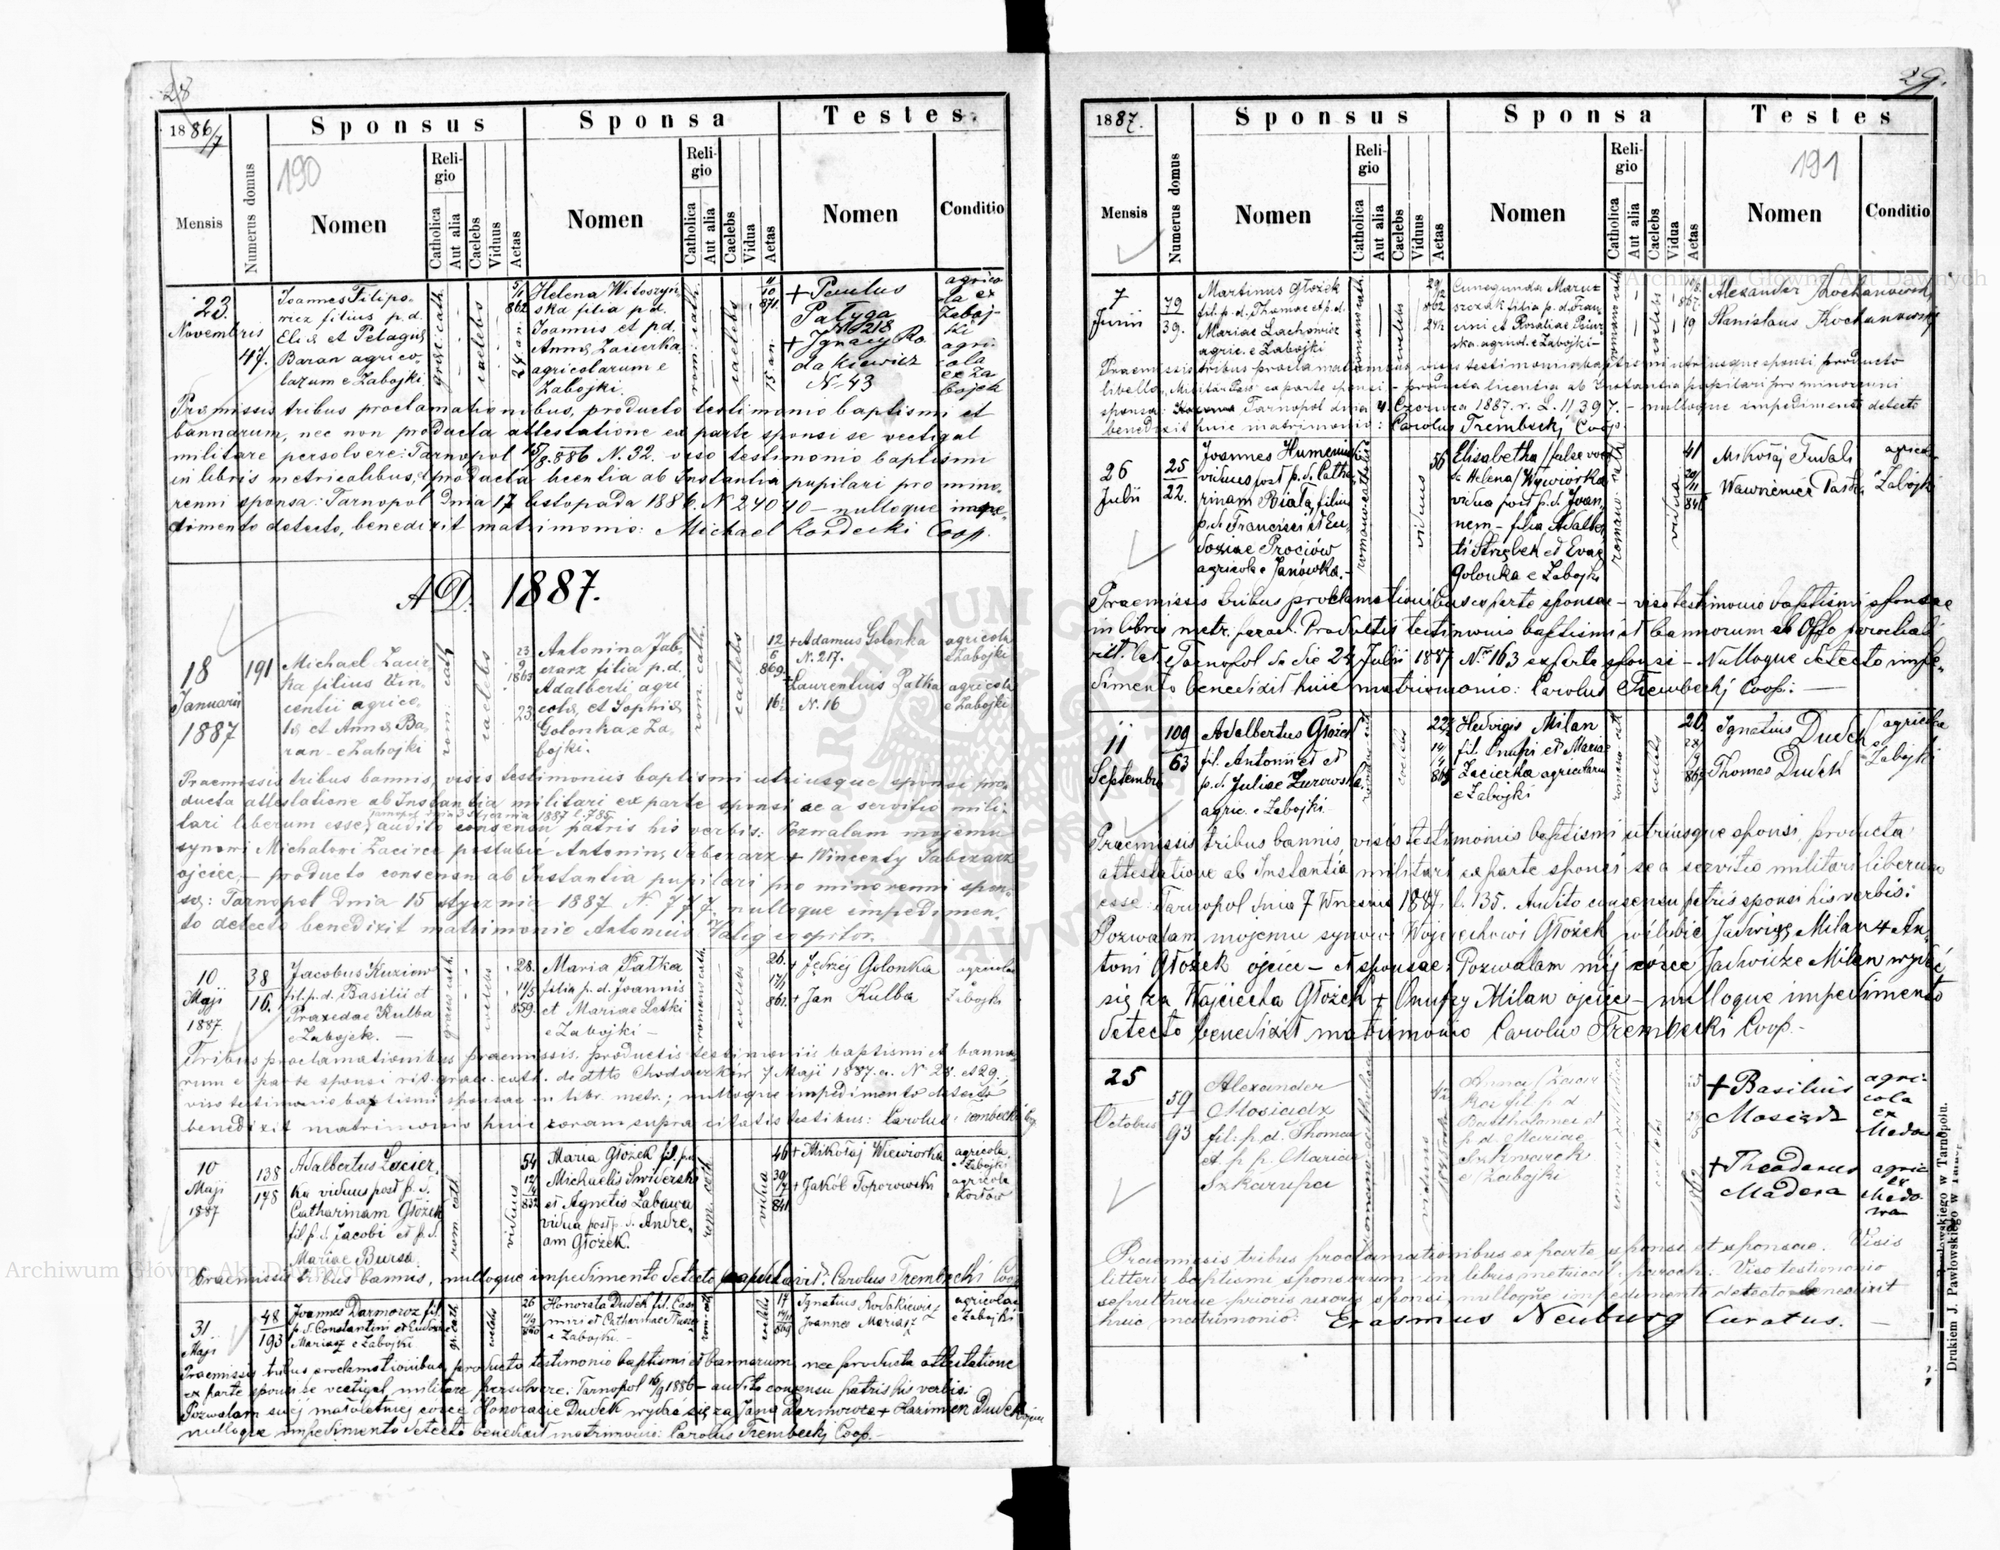 28
1886/7
Sponsus
Sponsa
Testes
Mensis
Numerus domus
190
Nomen
Religio
Catholica
Aut alia
Caelebs
Viduus
Aetas
Nomen
Religio
Catholica
Aut alia
Caelebs
Vidua
Aetas
Nomen
Conditio
23.
Novembris
47.
Joannes Filipo-
wicz filius p.d.
Eliæ et Pelagiæ
Baran agrico-
larum e Zabojki
caelebs
24 an.
Helena Witoszyń-
ska filia p.d.
Joannis et p.d.
Annæ Zacierka
agricolarum e
Zabojki.
rom. cath.
caelebs
15 an.
+ Paulus
Pałyga
№ 218
+ Ignacy Ro-
dakiewicz
N. 43
agrico-
la ex
Zaboj-
ki
agri-
cola
ex Za
bojek
Præmissis tribus proclamationibus, producto testimonio baptismi et
bannarum, nec non producta attestatione ex parte sponsi se vectigal
militare persolvere: Tarnopol 15/8 886 N. 32. viso testimonio baptismi
in libris metricalibus, producta licentia ab Instantia pupilari pro mino-
renni sponsa: Tarnopol dnia 17 listopada 1886. N 24010 — nulloque impe-
dimento detecto, benedixit matrimonio: Michael Kordecki Coop.
A D. 1887.
18
Januarii
1887
191
Michael Zacir-
ka filius Vin-
centii agrico-
læ et Annæ Ba-
ran e Zabojki
rom. cath
caelebs
23
9
1863
23.
Antonina Jab-
czarz filia p.d.
Adalberti agri
colæ, et Sophiæ
Golonka e Za-
bojki.
rom. cath.
caelebs
12
6
869
16½
+ Adamus Golonka
N. 217.
+ Laurentius Pałka
N. 16
agricola
e Zabojki
agricola
e Zabojki
Præmissis tribus bannis, visis testimoniis baptismi utriusque sponsi pro-
ducta attestatione ab Instantia militari ex parte sponsi se a servitio mili-
tari liberum esse, Tarnopol dnia 3 Stycznia 1887 l. 785 audito consensu patris his verbis: Pozwalam mojemu
synowi Michałowi Zacirce poślubić Antoninę Jabczarz + Wincenty
ojciec, — producto consensu ab Instantia pupilari pro minorenni spon-
sa: Tarnopol dnia 15 stycznia 1887 N 777, nulloque impedimen-
to detecto benedixit matrimonio Antonius
10
Maji
1887
38
16.
Jacobus Kuziow
fil. p.d. Basilii et
Praxedae Kulba
e Zabojek. —
caelebs
28.
14/5
859.
Maria Pałka
filia p.d. Joannis
et Mariae Letki
e Zabojki —
romano cath.
caelebs
26.
17/1
861.
+ Jędrzej Golonka
+ Jan Kulba
agricolae
e
Zabojki
Tribus proclamationibus praemissis, productis testimoniis baptismi et banno-
rum e parte sponsi rit. graec. cath. de dtto Chodaczków 7 Maji 1887. a. N 28. et 29,
viso testimonio baptismi sponsae in libr. metr.; nulloque impedimento detecto
benedixit matrimonio huic coram supra citatis testibus: Carolus Trembecki
10
Maji
1887
138
178
Adalbertus Zacier-
ka viduus post p.d.
Catharinam Głożek
fil. p.d. Jacobi et p.d.
Mariae Bursa.
rom cath
viduus
54
12/4
832
Maria Głożek fil. p.d.
Michaelis Swiderski
et Agnetis Zabawa
vidua post p.d. Andre-
am Głożek.
rom. cath.
vidua
46
841
+ Mikołaj Wiewiorka
+ Jakób Toporowski
agricola.
e Zabojki
agricola
e Korsów
Praemissis tribus bannis, nulloque impedimento detecto copulavit: Carolus Trembecki Coop.
31
Maji
48
193
Joannes Darmoroz fil.
p.d. Constantini et Eudoxiae
Mariasz e Zabojki
gr. cath.
caelebs
26
Honorata Dudek fil. Casi-
miri et Catharinae
e Zabojki. —
rom. cath.
caelebs
17
869
Ignatius Rodakiewicz
Joannes Mariasz
agricolae
e Zabojki
Praemissis tribus proclamationibus, producto testimonio baptismi et bannorum nec producta attestatione
ex parte sponsi se vectigal militare persolvere: Tarnopol 16/9 1886 — audito consensu patris his verbis:
Pozwalam swej małoletniej córce Honoracie Dudek wydać się za Jana Darmoroza + Kazimierz Dudek ojciec
nulloque impedimento detecto benedixit matrimonio: Carolus Trembecki Coop. —
29.
1887.
Sponsus
Sponsa
Testes
Mensis
Numerus domus
Nomen
Religio
Catholica
Aut alia
Caelebs
Viduus
Aetas
Nomen
Religio
Catholica
Aut alia
Caelebs
Vidua
Aetas
191
Nomen
Conditio
7
Junii
79
39.
Martinus Głożek
fil. p.d. Thomae et p.d.
Mariae Lachowicz
agric. e Zabojki
romano cath.
caelebs
29/12
862
24½
Cunegunda Marusz-
czak filia p.d. Fran-
cisci et Rosaliae
agricol. e Zabojki —
romano cath.
caelebs
867.
19
Alexander Kochanowski
Stanislaus Kochanowski
Praemissis tribus proclamationibus, viso testimonio baptismi utriusque sponsi, producto
libello Militär-Pass ex parte sponsi — producta licentia ab Instantia pupilari pro minorenni
sponsa: Tarnopol dnia 4. Czerwca 1887. r. L. 11397. — nulloque impedimento detecto
benedixit huic matrimonio: Carolus Trembecki Coop.
26
Julii
25
22.
Joannes Humeniuk
viduus post p.d. Catha-
rinam Biała, filius
p.d. Francisci et Eu-
doxiae Prociów
agricola e Janówka. —
romano cath.
viduus
56
Elisabetha /false voca-
ta Helena/ Wywiorka
vidua post p.d. Joan-
nem — filia Adalber-
ti Strzębek et Evae
Golonka e Zabojki
romano-cath
vidua
41
20/11
846
Mikołaj Fudali
Wawrzeniec Pastu
agricol.
e Zabojki
Praemissis tribus proclamationibus ex parte sponsae — viso testimonio baptismi sponsae
in libris metr. paroch. Productis testimoniis baptismi et bannorum ab Offo parochiali
rit. lat. Tarnopol de die 24 Julii 1887 Nr. 163 ex parte sponsi — Nulloque detecto impe-
dimento benedixit huic matrimonio: Carolus Trembecki Coop: —
11
Septembris
109
63
Adalbertus Głożek
fil. Antonii et et
p.d. Juliae Zurowska
agric. e Zabojki
caelebs
22½
Hedvigis Milan
fil. Onufri et Mariae
Zacierka agricolarum
e Zabojki
romano cath
caelebs
20.
Ignatius Dudek
Thomas Dudek
agricolae
e
Zabojki
Praemissis tribus bannis, visis testimoniis baptismi utriusque sponsi, producta
attestatione ab Instantia militari ex parte sponsi se a servitio militari liberum
esse Tarnopol dnia 7 Wrześnie 1887. l. 135. Audito consensu patris sponsi his verbis:
Pozwalam mojemu synowi Wojciechowi Głożek poślubić Jadwigę Milan + An-
toni Głożek ojciec — et sponsae: Pozwalam mej córce Jadwidze Milan wydać
się za Wojciecha Głożek + Onufry Milan ojciec — nulloque impedimento
detecto benedixit matrimonio Carolus Trembecki Coop. —
25
Octobris
59
93
Alexander
Mosiądz
fil: p.d. Thomae
et p.p. Mariae
Szkarupa
romano catholica
viduus
Anna Zacier
ka fil. p.d.
Bartholomei et
p.d. Mariae
Szkwarek
e Zabojki
caelebs
1862
+ Basilius
Mosiądz
+ Theodorus
Madera
agri-
cola
ex
Chodo
agric
ex
Chodo
wa
Praemissis tribus proclamationibus ex parte sponsi et sponsae. Visis
litteris baptismi sponsorum in libris metrical: paroch: Viso testimonio
sepulturae prioris uxoris sponsi, nulloque impedimento detecto benedixit
huic matrimonio: Erasmus Neuburg Curatus. —
Drukiem J. Pawłowskiego w Tarnopolu.
Archiwum Główne Akt Dawnych
Archiwum Główne Akt Dawnych
ARCHIWUM GŁÓWNE AKT DAWNYCH